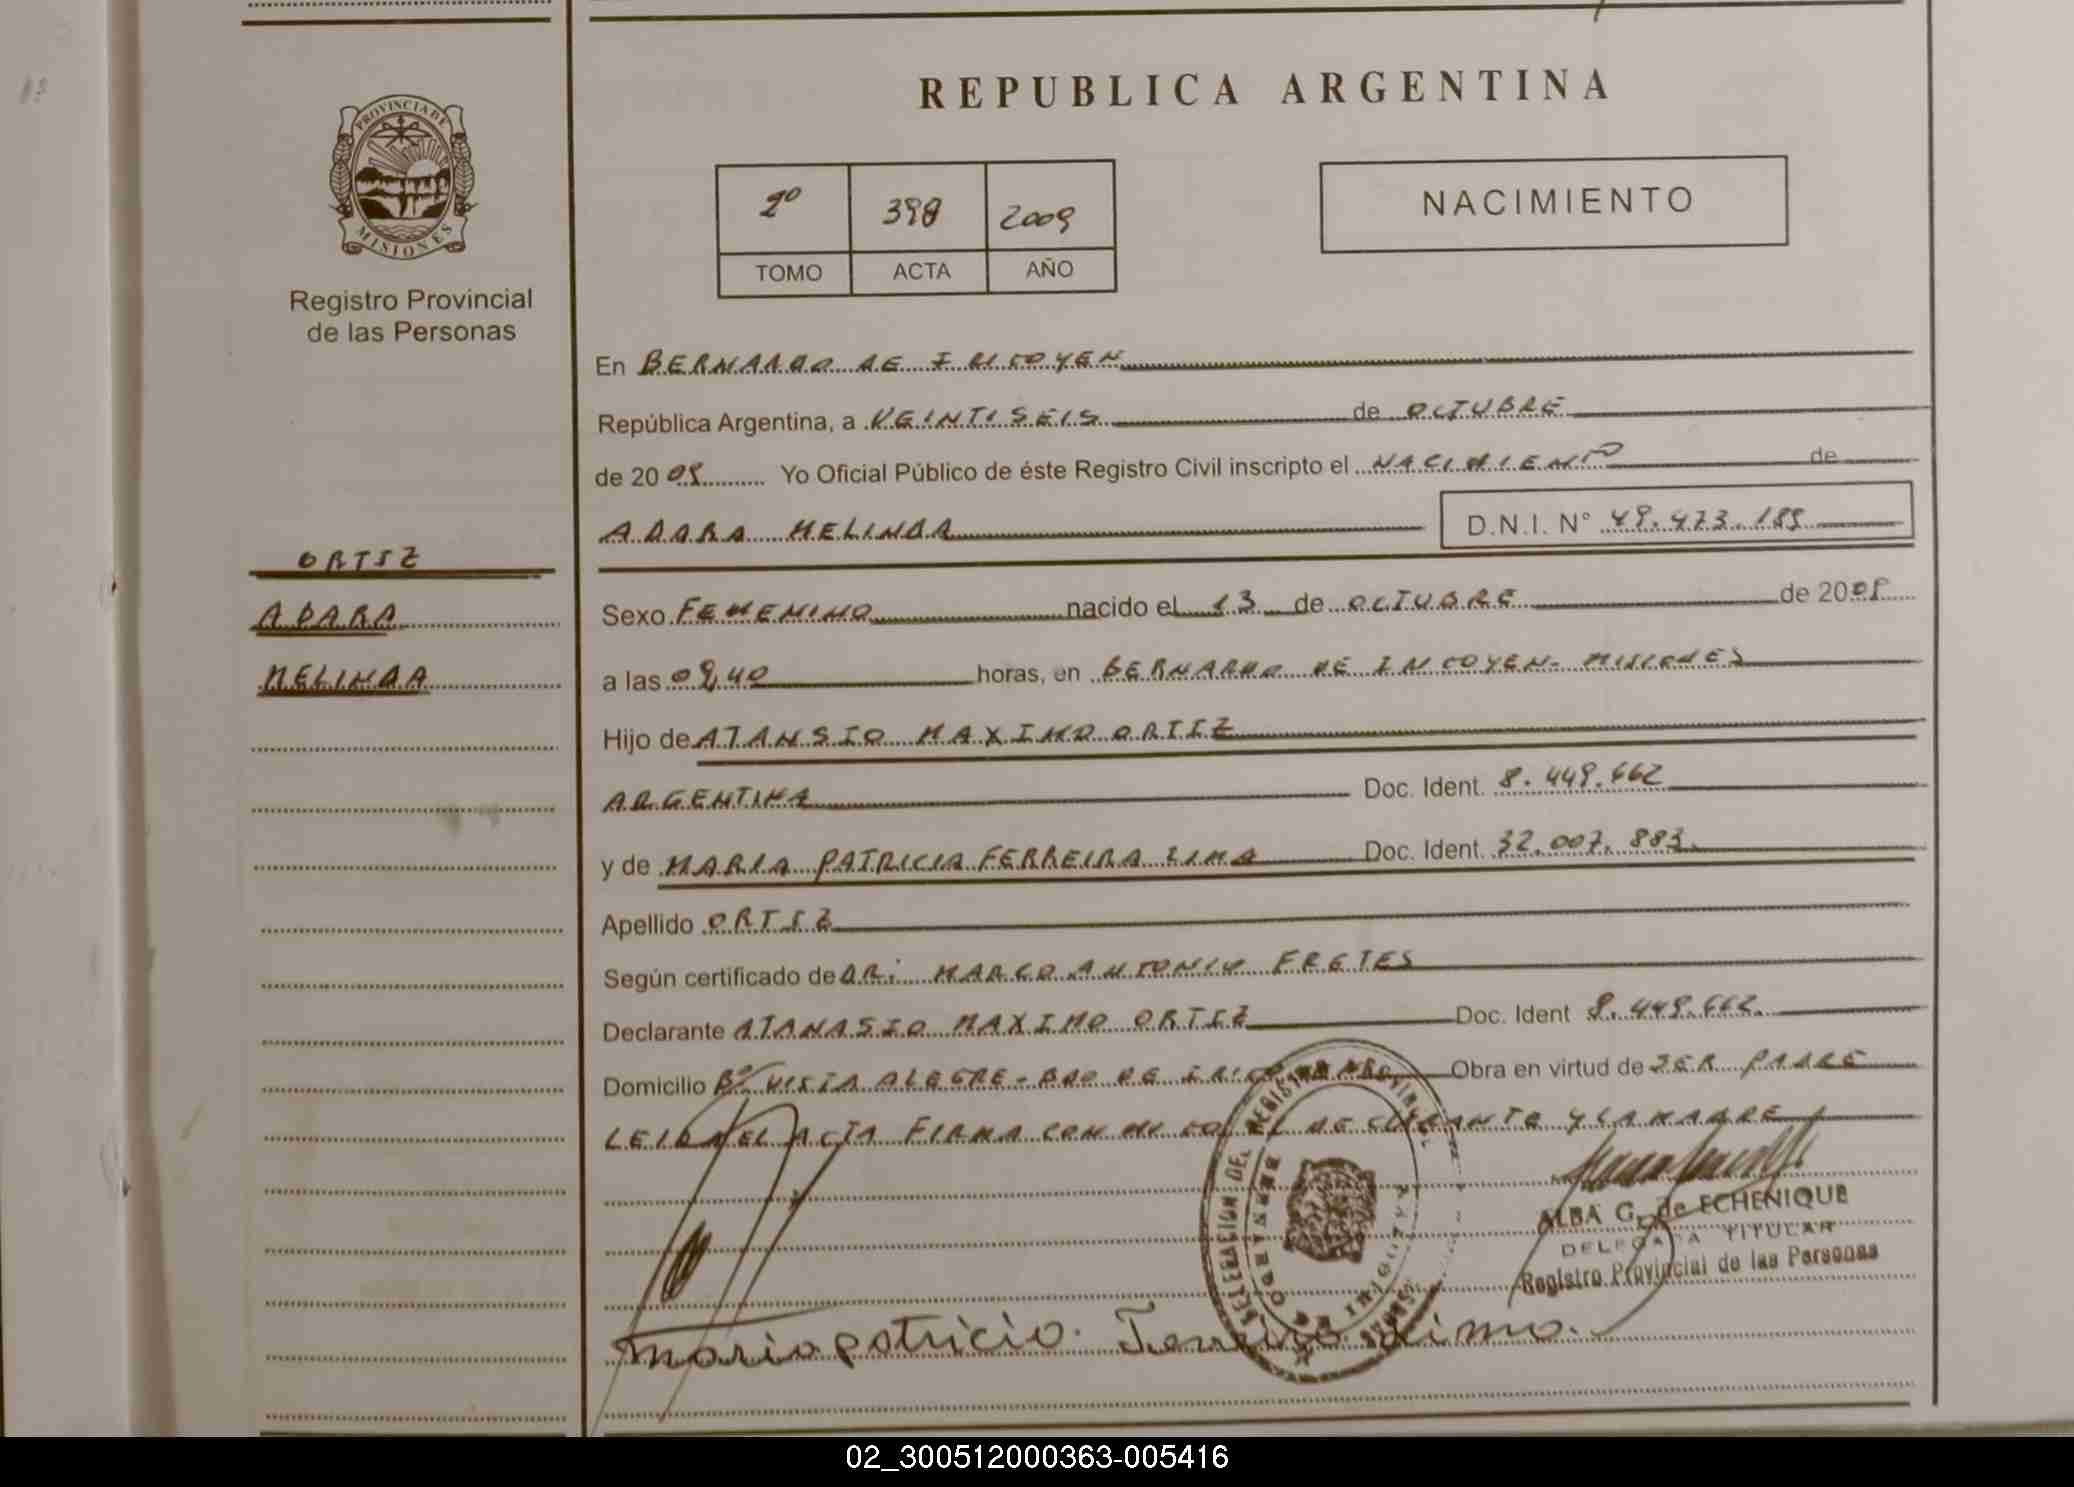 REPUBLICA ARGENTINA
PROVINCIA DE
MISIONES
Registro Provincial
de las Personas
2º 398 2009
TOMO ACTA AÑO
NACIMIENTO
En BERNARDO DE IRIGOYEN
República Argentina, a VEINTISEIS de OCTUBRE
de 2009 Yo Oficial Público de éste Registro Civil inscripto el NACIMIENTO de
ADARA MELINDA D.N.I. N° 49.473.189
ORTIZ
ADARA
MELINDA
Sexo FEMENINO nacido el 13 de OCTUBRE de 2009
a las 09,40 horas, en BERNARDO DE IRIGOYEN- MISIONES
Hijo de ATANSIO MAXIMO ORTIZ
ARGENTINA Doc. Ident. 8.449.662
y de MARIA PATRICIA FERREIRA LIMA Doc. Ident. 32.007.883.
Apellido ORTIZ
Según certificado de DR. MARCO ANTONIO FRETES
Declarante ATANASIO MAXIMO ORTIZ Doc. Ident 8.449.662.
Domicilio Bº VISTA ALEGRE - BDO DE Obra en virtud de SER PADRE
LEIDA EL ACTA FIRMA CON MI Y LA MADRE
DELEGACION DEL REGISTRO PROVINCIAL
ALBA G. de ECHENIQUE
DELEGADA TITULAR
Registro Provincial de las Personas
Maria patricia Ferreira Lima.
02_300512000363-005416